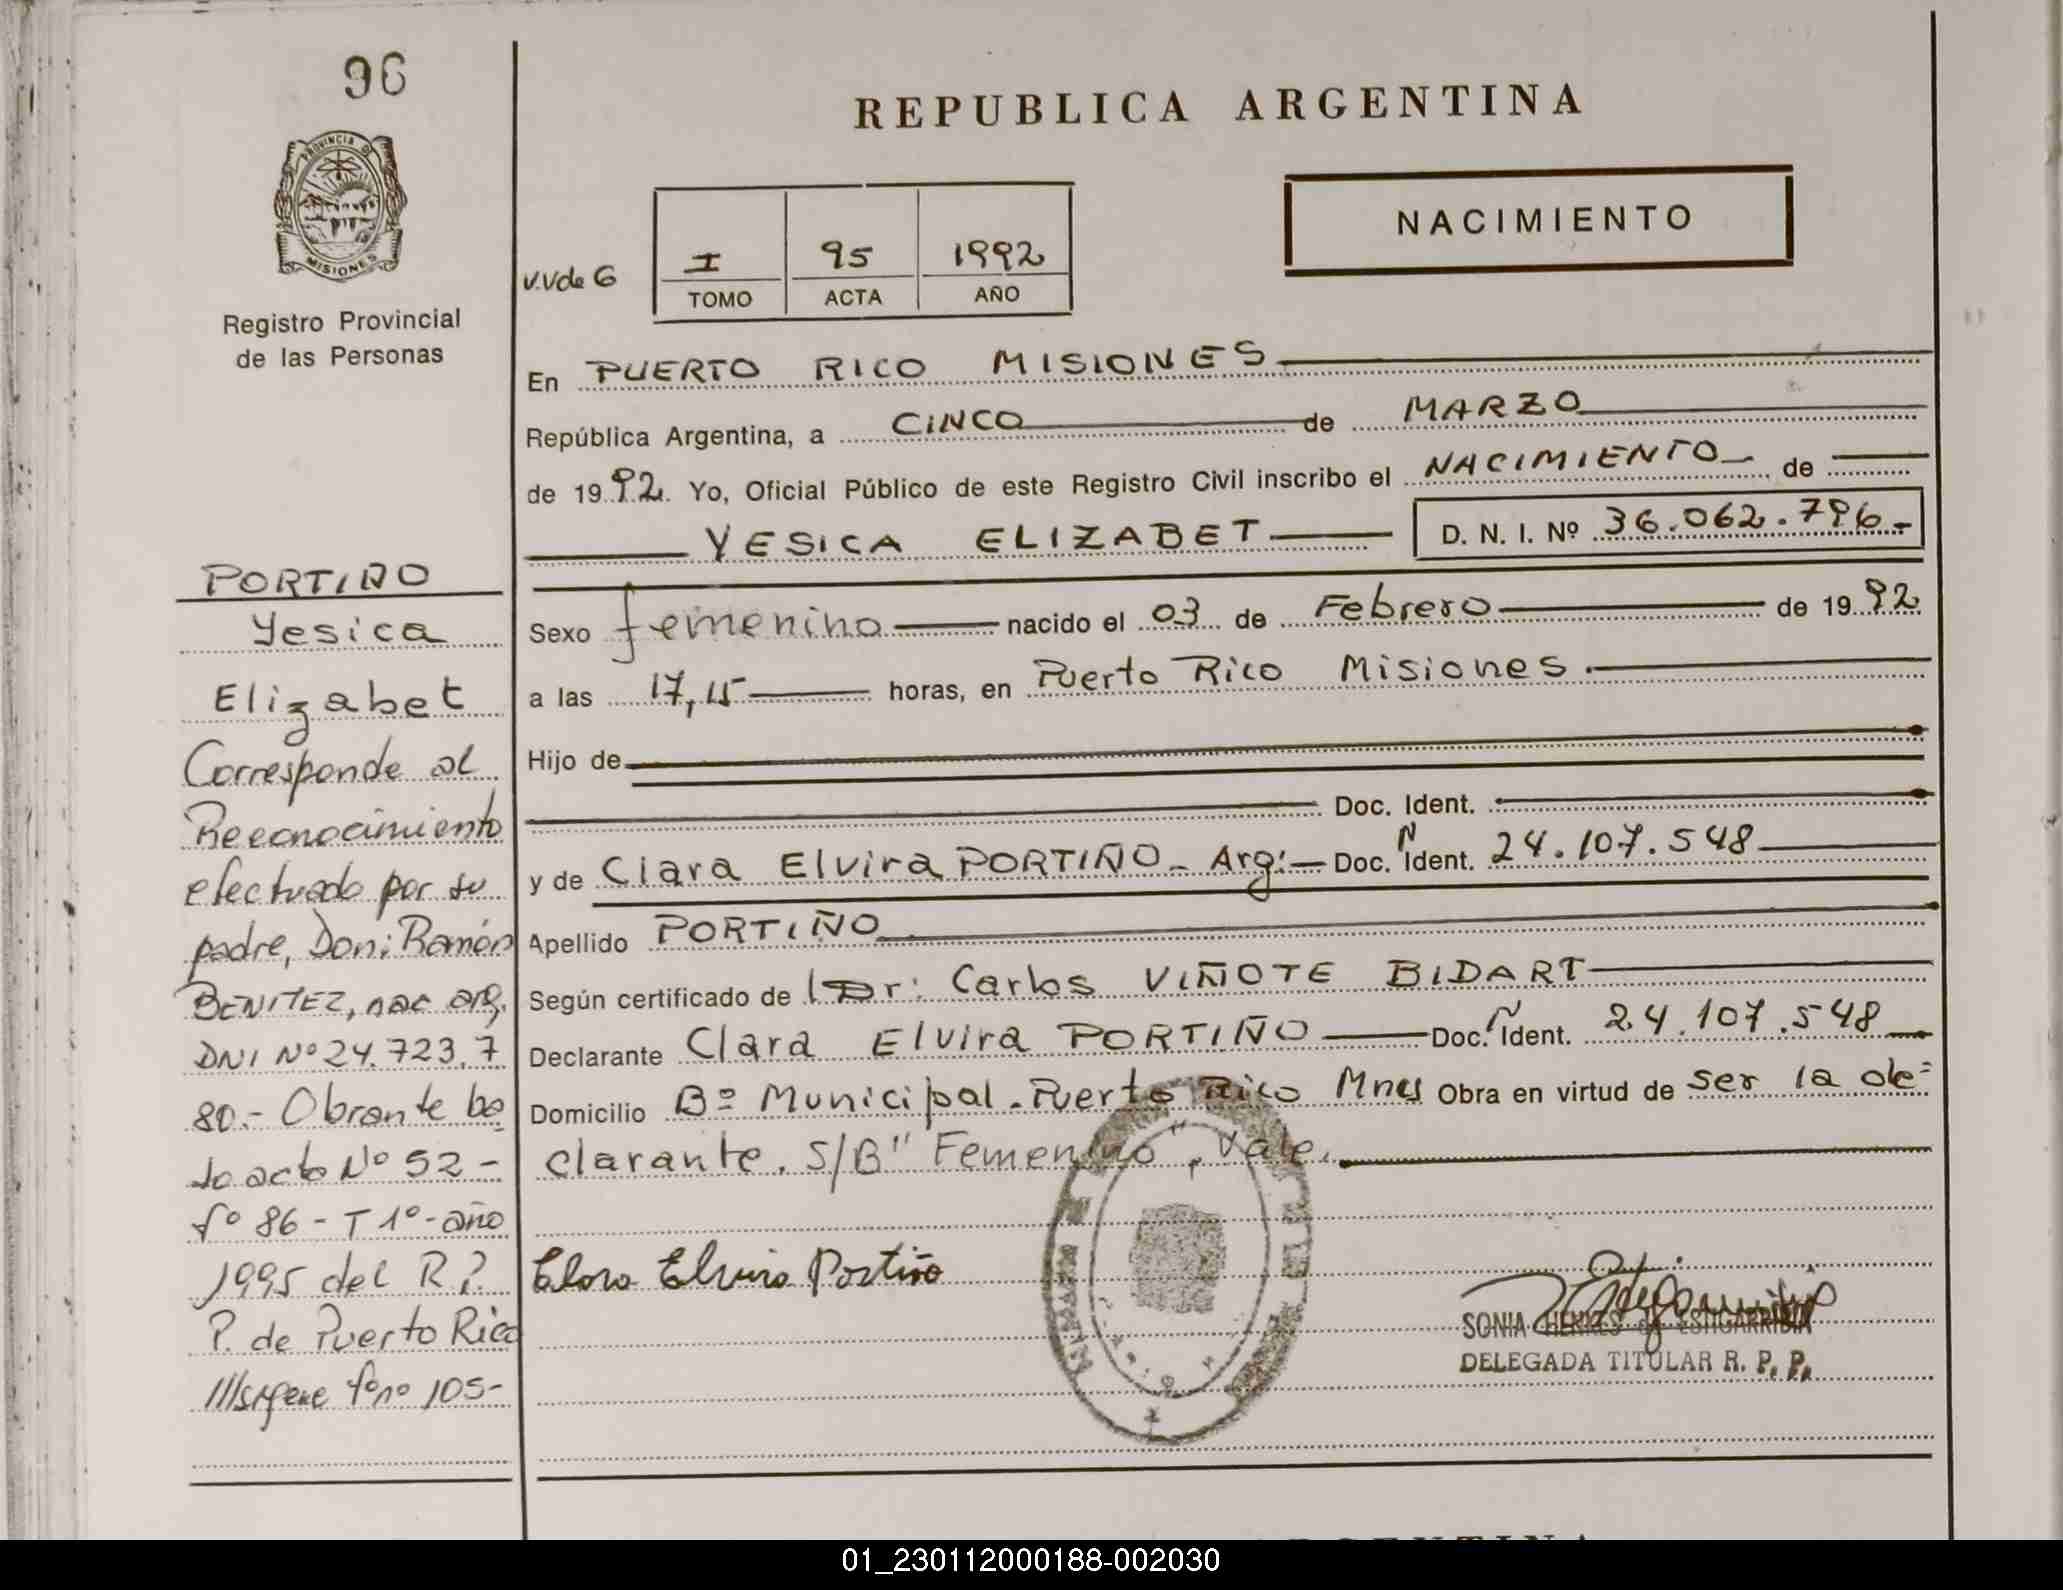 96
REPUBLICA ARGENTINA
PROVINCIA D
MISIONES
NACIMIENTO
V.V de G
I 95 1992
TOMO ACTA AÑO
Registro Provincial
de las Personas
En PUERTO RICO MISIONES
República Argentina, a CINCO de MARZO
de 1992. Yo, Oficial Público de este Registro Civil inscribo el NACIMIENTO de
YESICA ELIZABET D. N. I. Nº 36.062.796.-
Sexo femenino nacido el 03 de Febrero de 1992
a las 17,15 horas, en Puerto Rico Misiones.
Hijo de
Doc. Ident.
y de Clara Elvira PORTIÑO - Arg: Doc. N Ident. 24.107.548
Apellido PORTIÑO
Según certificado de Dr: Carlos VIÑOTE BIDART
Declarante Clara Elvira PORTIÑO Doc. N Ident. 24.107.548
Domicilio Bº Municipal - Puerto Rico Mnes Obra en virtud de ser la de=
clarante. S/B "Femenino", Vale.
Clara Elvira Portiño
SONIA HENKES de ESTIGARRIBIA
DELEGADA TITULAR R. P. P.
PORTIÑO
Yesica
Elizabet
Corresponde al
Reconocimiento
efectuado por su
padre, Don: Ramón
BENITEZ, nac arg.
DNI Nº 24.723.7
80.- Obrante ba
jo acta Nº 52 -
fº 86 - T 1º - año
1995 del R.P.
P. de Puerto Rico
105-
01_230112000188-002030